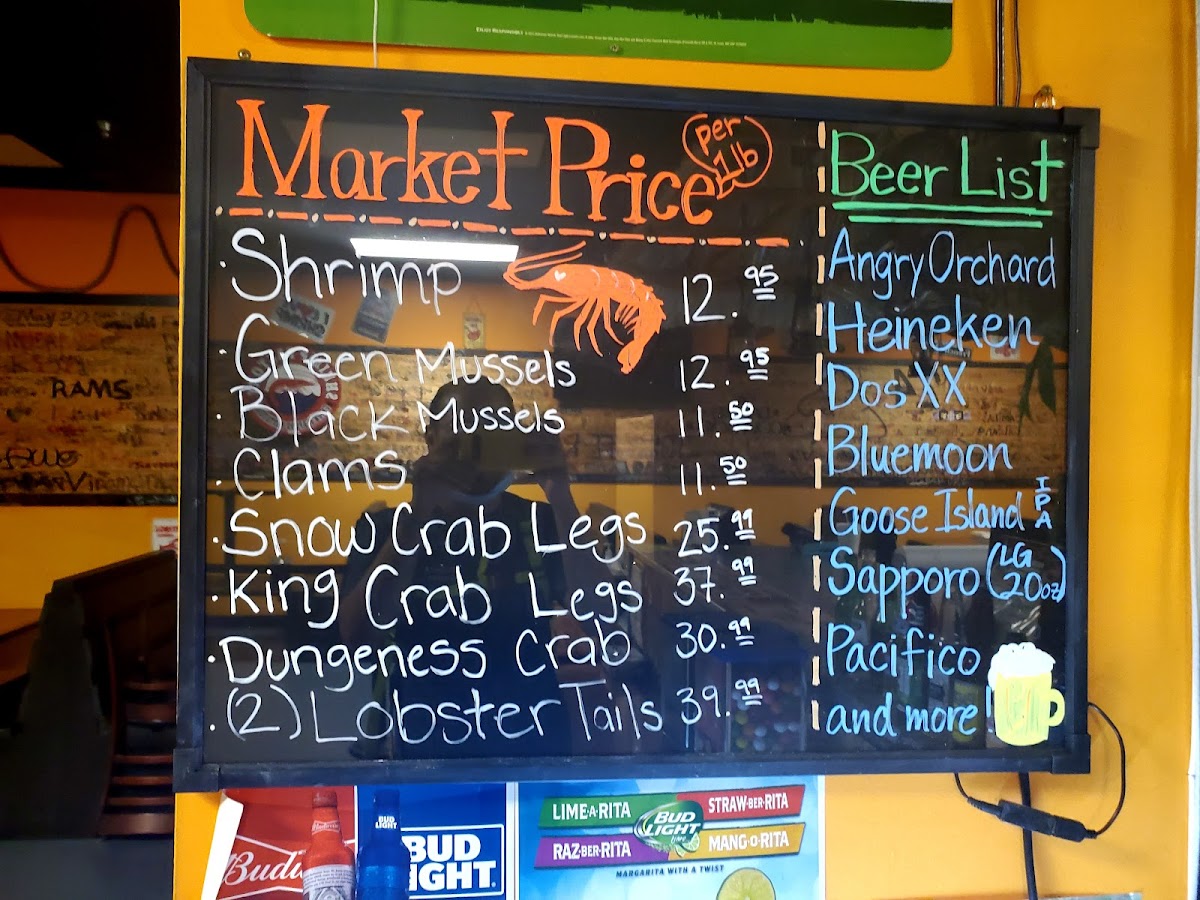 ENJOY RESPONSIBLY
Market Price per 1lb
· Shrimp 12.95
· Green Mussels 12.95
· Black Mussels 11.50
· Clams 11.50
· Snow Crab Legs 25.99
· King Crab Legs 37.99
· Dungeness Crab 30.99
· (2) Lobster Tails 39.99
Beer List
Angry Orchard
Heineken
Dos XX
Bluemoon
Goose Island IPA
Sapporo (LG 20oz)
Pacifico
and more!
RAMS
BUD LIGHT
BUD
LIGHT
LIME·A·RITA
STRAW·BER·RITA
BUD
LIGHT
Lime
RAZ·BER·RITA
MANG·O·RITA
MARGARITA WITH A TWIST